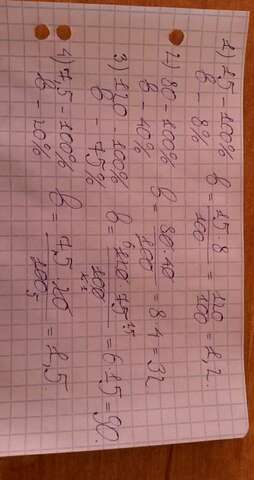 1) 15 - 100% b = 15·8/100 = 120/100 = 1,2.
b - 8%
2) 80 - 100% b = 80·40/100 = 8·4 = 32
b - 40%
3) 120 - 100% b = 120·75/100 = 6·15 = 90.
b - 75%
4) 7,5 - 100% b = 7,5·20/100 = 1,5.
b - 20%